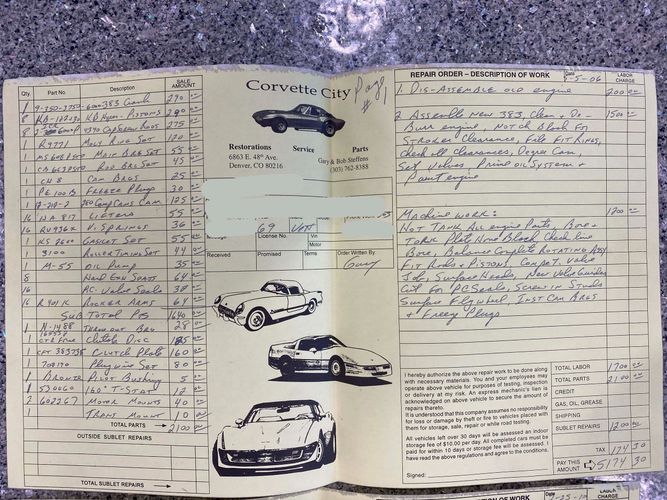 Qty. Part No. Description SALE AMOUNT
1 9-350-3750-6000 383 Crank 290 00
8 KB-142-030 KB Hyper Pistons 290 00
8 4340 Capscrew Rods 275 00
1 R9771 Moly Ring Set 120 00
1 Main Brg Set 55 00
1 Rod Brg Set 45 00
1 CH8 Cam Brgs 25 00
1 PE100B Freeze Plugs 30 00
1 260 Comp Cams Cam 125 00
16 HA 817 Lifters 55 00
16 V. Springs 36 00
1 KS 2600 Gasket Set 55 00
1 3100 Roller Timing Set 44 00
1 M-55 Oil Pump 35 00
8 Hard Exh Seats 64 00
16 P.C. Valve Seals 38 00
16 R 901 K Rocker Arms 64 00
Sub Total Pts 1640 00
1 N-1488 Throwout Brg 28 00
1 Clutch Disc
1 Clutch Plate 160 00
1 Plug wire Set 80 00
1 Bronze Pilot Bushing 5 00
1 160° T-Stat
2 602267 Motor Mounts 40 00
1 Trans Mount 10 00
TOTAL PARTS 2100 00
OUTSIDE SUBLET REPAIRS
TOTAL SUBLET REPAIRS
Corvette City
Page #1
Restorations Service Parts
6863 E. 48th Ave.
Denver, CO 80216
Gary & Bob Steffens
(303) 762-8388
69 Vett
License No. Vin
Motor
Received Promised Terms Order Written By
Gary
REPAIR ORDER – DESCRIPTION OF WORK Date 5-5-06 LABOR CHARGE
1. Dis-Assemble old engine 200 00
2 Assemble New 383, Clean, De-
Burr engine, Notch Block For
Stroker Clearance, File Fit Rings,
Check all Clearances, Degree Cam,
Set Valves, Prime Oil System &
Paint engine
1500 00
Machine work: 1200 00
Hot Tank All engine Parts, Bore &
Tork Plate Hone Block, Check line
Bore, Balance Complete Rotating Assy
Fit Rods & Pistons, Compet. Valve
Job, Surface Heads, New Valve Guides
Cut for PC Seals, Screw in Studs
Surface Flywheel, Inst Cam Brgs
& Freeze Plugs
I hereby authorize the above repair work to be done along
with necessary materials. You and your employees may
operate above vehicle for purposes of testing, inspection
or delivery at my risk. An express mechanic's lien is
acknowledged on above vehicle to secure the amount of
repairs thereto.
It is understood that this company assumes no responsibility
for loss or damage by theft or fire to vehicles placed with
them for storage, sale, repair or while road testing.
All vehicles left over 30 days will be assessed an indoor
storage fee of $10.00 per day. All completed cars must be
paid for within 10 days or storage fee will be assessed. I
have read the above regulations and agree to the conditions.
Signed:
TOTAL LABOR 1700 00
TOTAL PARTS 2100 00
CREDIT
GAS, OIL, GREASE
SHIPPING
SUBLET REPAIRS 1200 00
TAX 174 30
PAY THIS AMOUNT 5174 30
REPAIR ORDER – DESCRIPTION OF WORK Date LABOR CHARGE